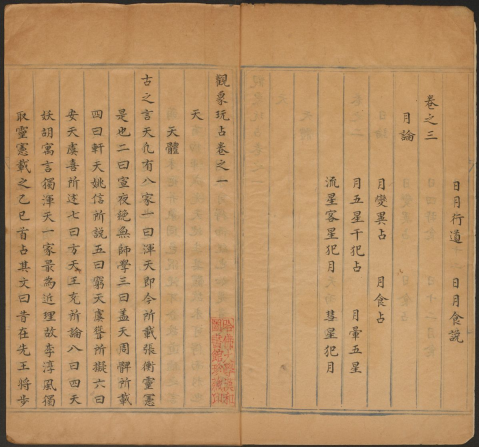 日月行道　日月食說
卷之三
月論
月變異占　月食占
月五星干犯占　月暈五星
流星客星犯月　彗星犯月
觀象玩占卷之一
天
天體
古之言天凡有八家一曰渾天即今所載張衡靈憲
是也二曰宣夜絕無師學三曰蓋天周髀所載
四曰軒天姚信所説五曰窮天虞聳所擬六曰
安天虞喜所述七曰方天王充所論八曰四天
妖胡寓言獨渾天一家最為近理故李淳風獨
取靈憲載之乙巳首占其文曰昔在先王將步